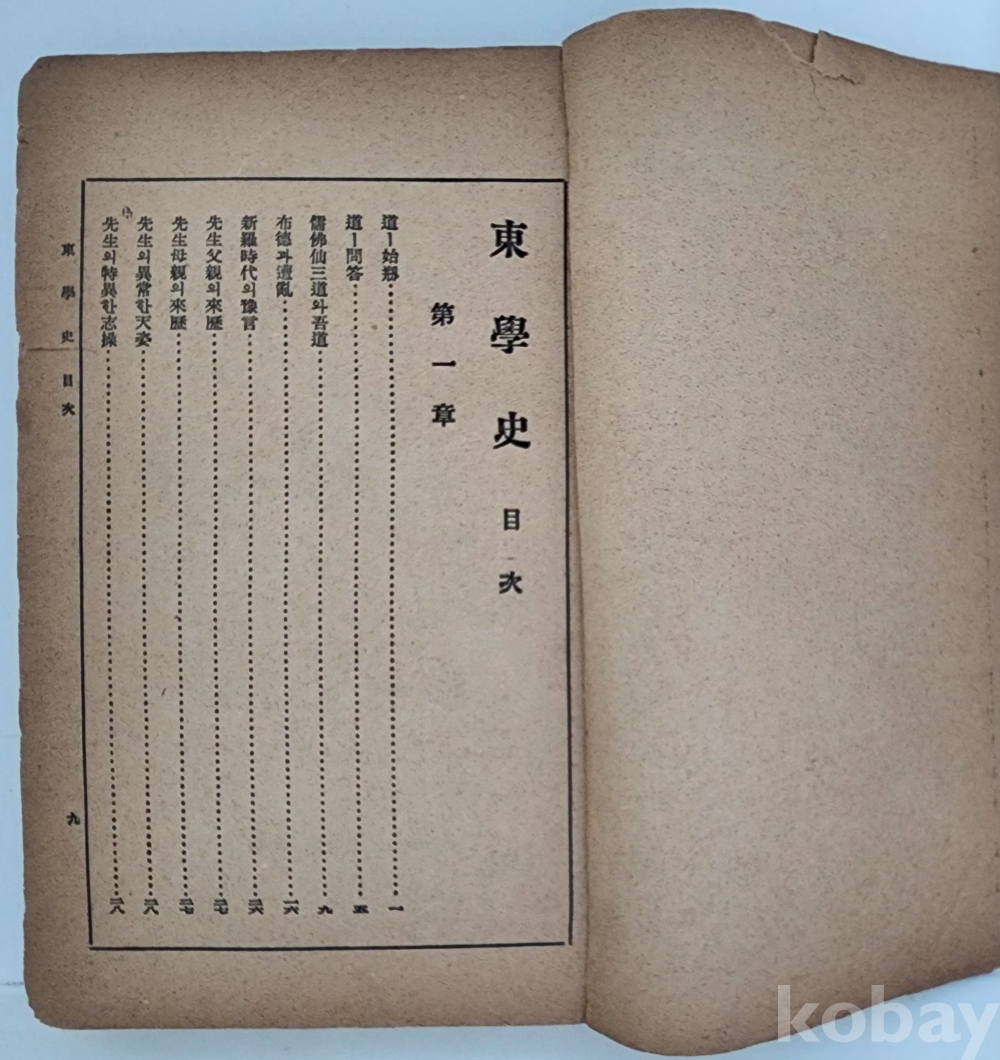 東學史 目次
第一章
道ㅣ始……一
道ㅣ問答……五
儒佛仙三道와吾道……九
布德과遭亂……一六
新羅時代의豫言……二六
先生父親의來歷……二七
先生母親의來歷……二七
先生의異常한天姿……二八
先生의特異한志操……二八
東學史 目次
九
kobay